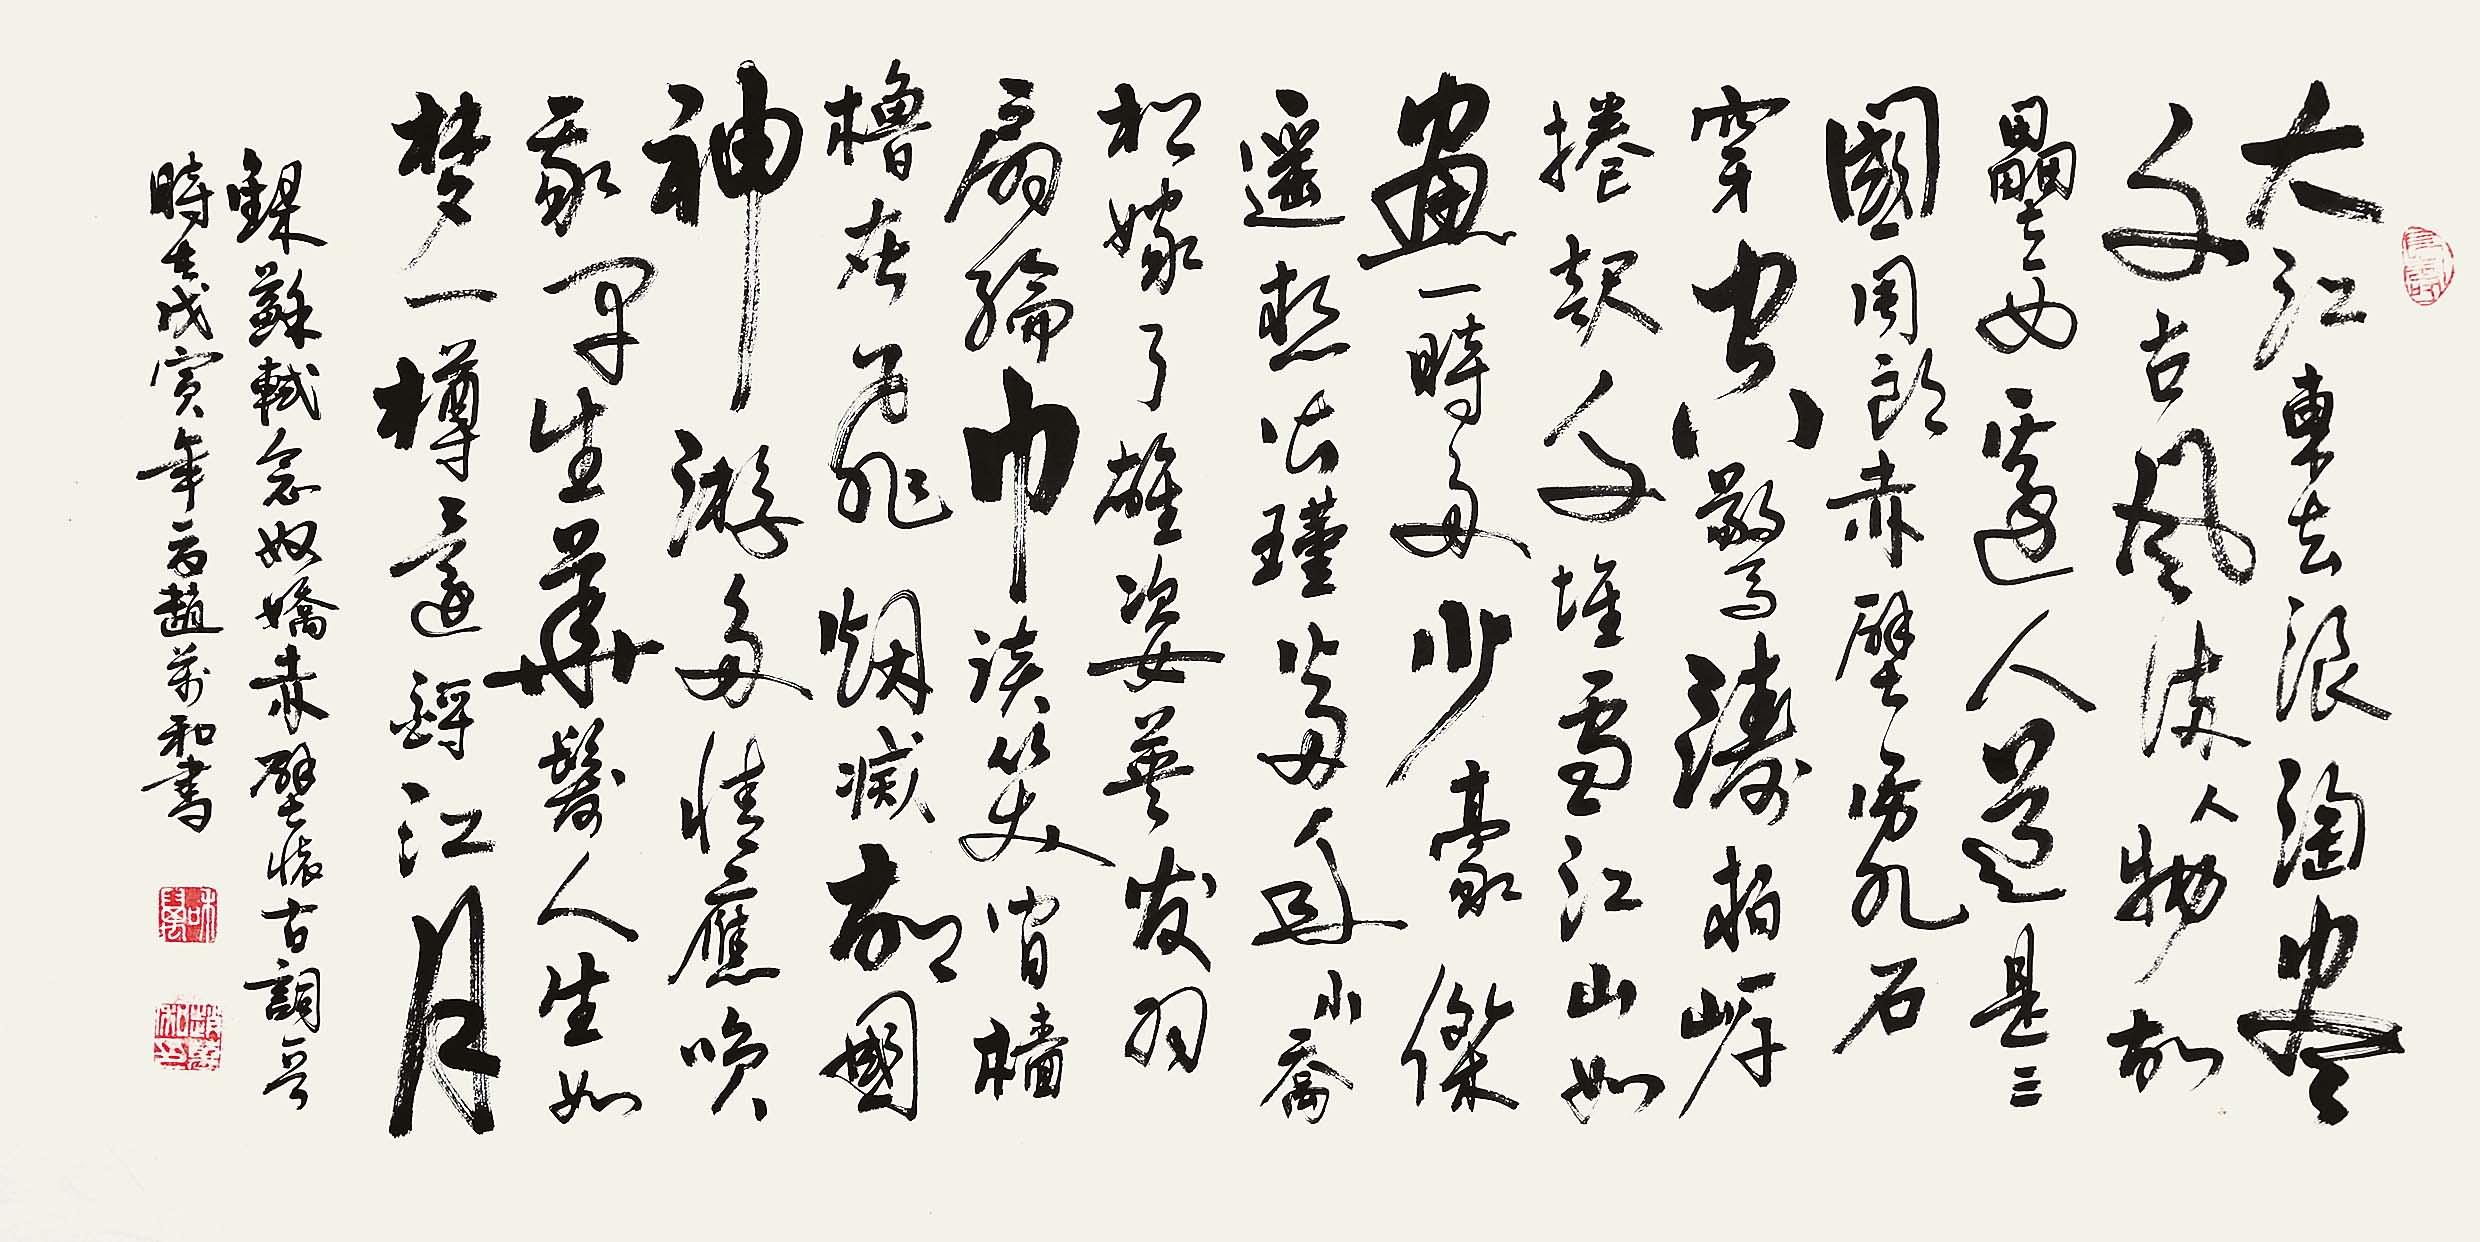 大江東去浪淘盡
千古風流人物故
壘西邊人道是三
國周郎赤壁亂石
穿空驚濤拍岸
捲起千堆雪江山如
畫一時多少豪傑
遥想公瑾當年小喬
初嫁了雄姿英发羽
扇綸巾談笑間檣
櫓灰飛烟滅故國
神游多情應咲
我早生華髮人生如
梦一樽還酹江月
録蘇軾念奴嬌赤壁懷古詞
時在戊寅年趙萬和書